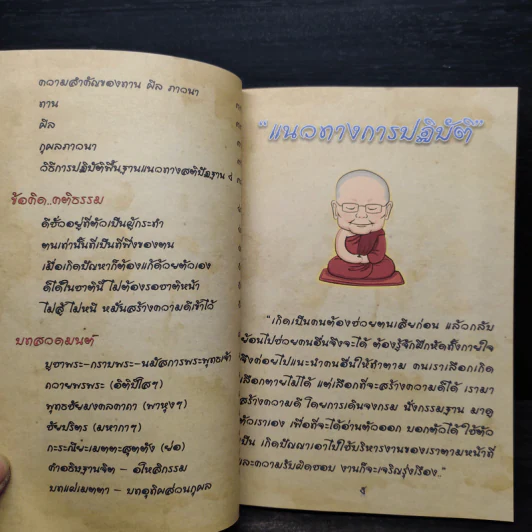 ความสำคัญของทาน ศีล ภาวนา
ทาน
ศีล
กุศลภาวนา
วิธีการปฏิบัติพื้นฐานแนวทางสติปัฏฐาน ๔
ข้อคิด..คติธรรม
ดีชั่วอยู่ที่ตัวเป็นผู้กระทำ
ตนเท่านั้นที่เป็นที่พึ่งของตน
เมื่อเกิดปัญหาก็ต้องแก้ด้วยตัวเอง
ดีได้ในชาตินี้ ไม่ต้องรอชาติหน้า
ไม่สู้ ไม่หนี หมั่นสร้างความดีเข้าไว้
บทสวดมนต์
บูชาพระ-กราบพระ-นมัสการพระพุทธเจ้า
ถวายพรพระ (อิติปิโสฯ)
พุทธชัยมงคลคาถา (พาหุงฯ)
ชัยปริตร (มหากาฯ)
กะระณียะเมตตะสุตตัง (ย่อ)
คำอธิษฐานจิต - อโหสิกรรม
บทแผ่เมตตา - บทอุทิศส่วนกุศล
"แนวทางการปฏิบัติ"
"เกิดเป็นคนต้องช่วยตนเสียก่อน แล้วกลับ
ย้อนไปช่วยคนอื่นจึงจะได้ ต้องรู้จักฝึกหัดถึงภายใจ
จึงค่อยไปแนะนำคนอื่นให้ทำตาม คนเราเลือกเกิด
เลือกตายไม่ได้ แต่เลือกที่จะสร้างความดีได้ เรามา
สร้างความดี โดยการเดินจงกรม นั่งกรรมฐาน มาดู
ตัวเราเอง เพื่อที่จะได้อ่านตัวออก บอกตัวได้ ใช้ตัว
เป็น เกิดปัญญาเอาไปใช้บริหารงานของเราตามหน้าที่
และความรับผิดชอบ งานก็จะเจริญรุ่งเรือง.."